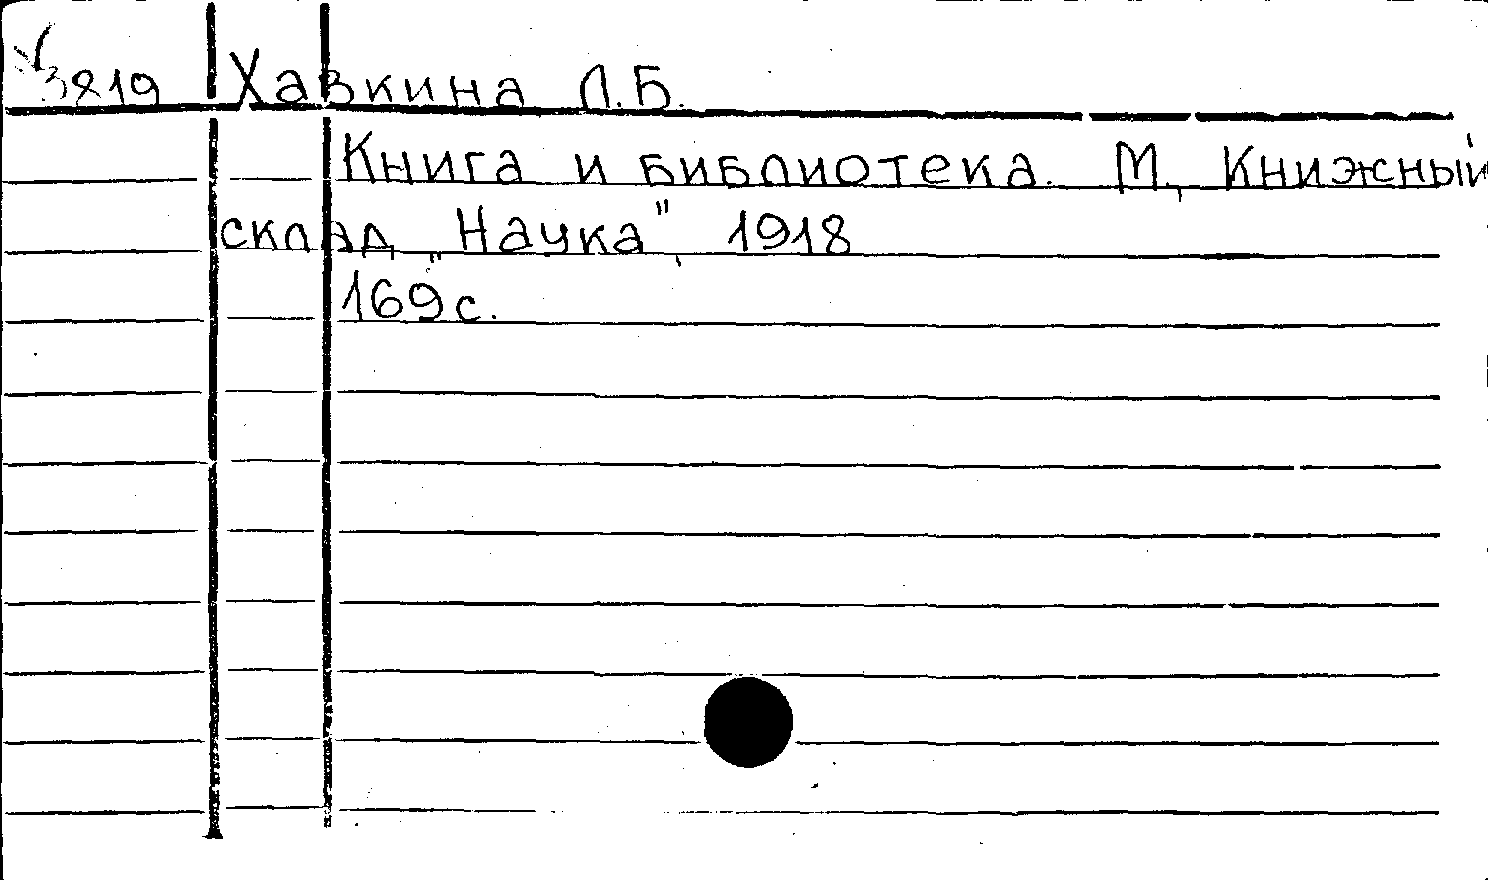 3819 Хавкина Л.Б.
Книга и библиотека. М, Книжный
склад „Наука”, 1918
169с.